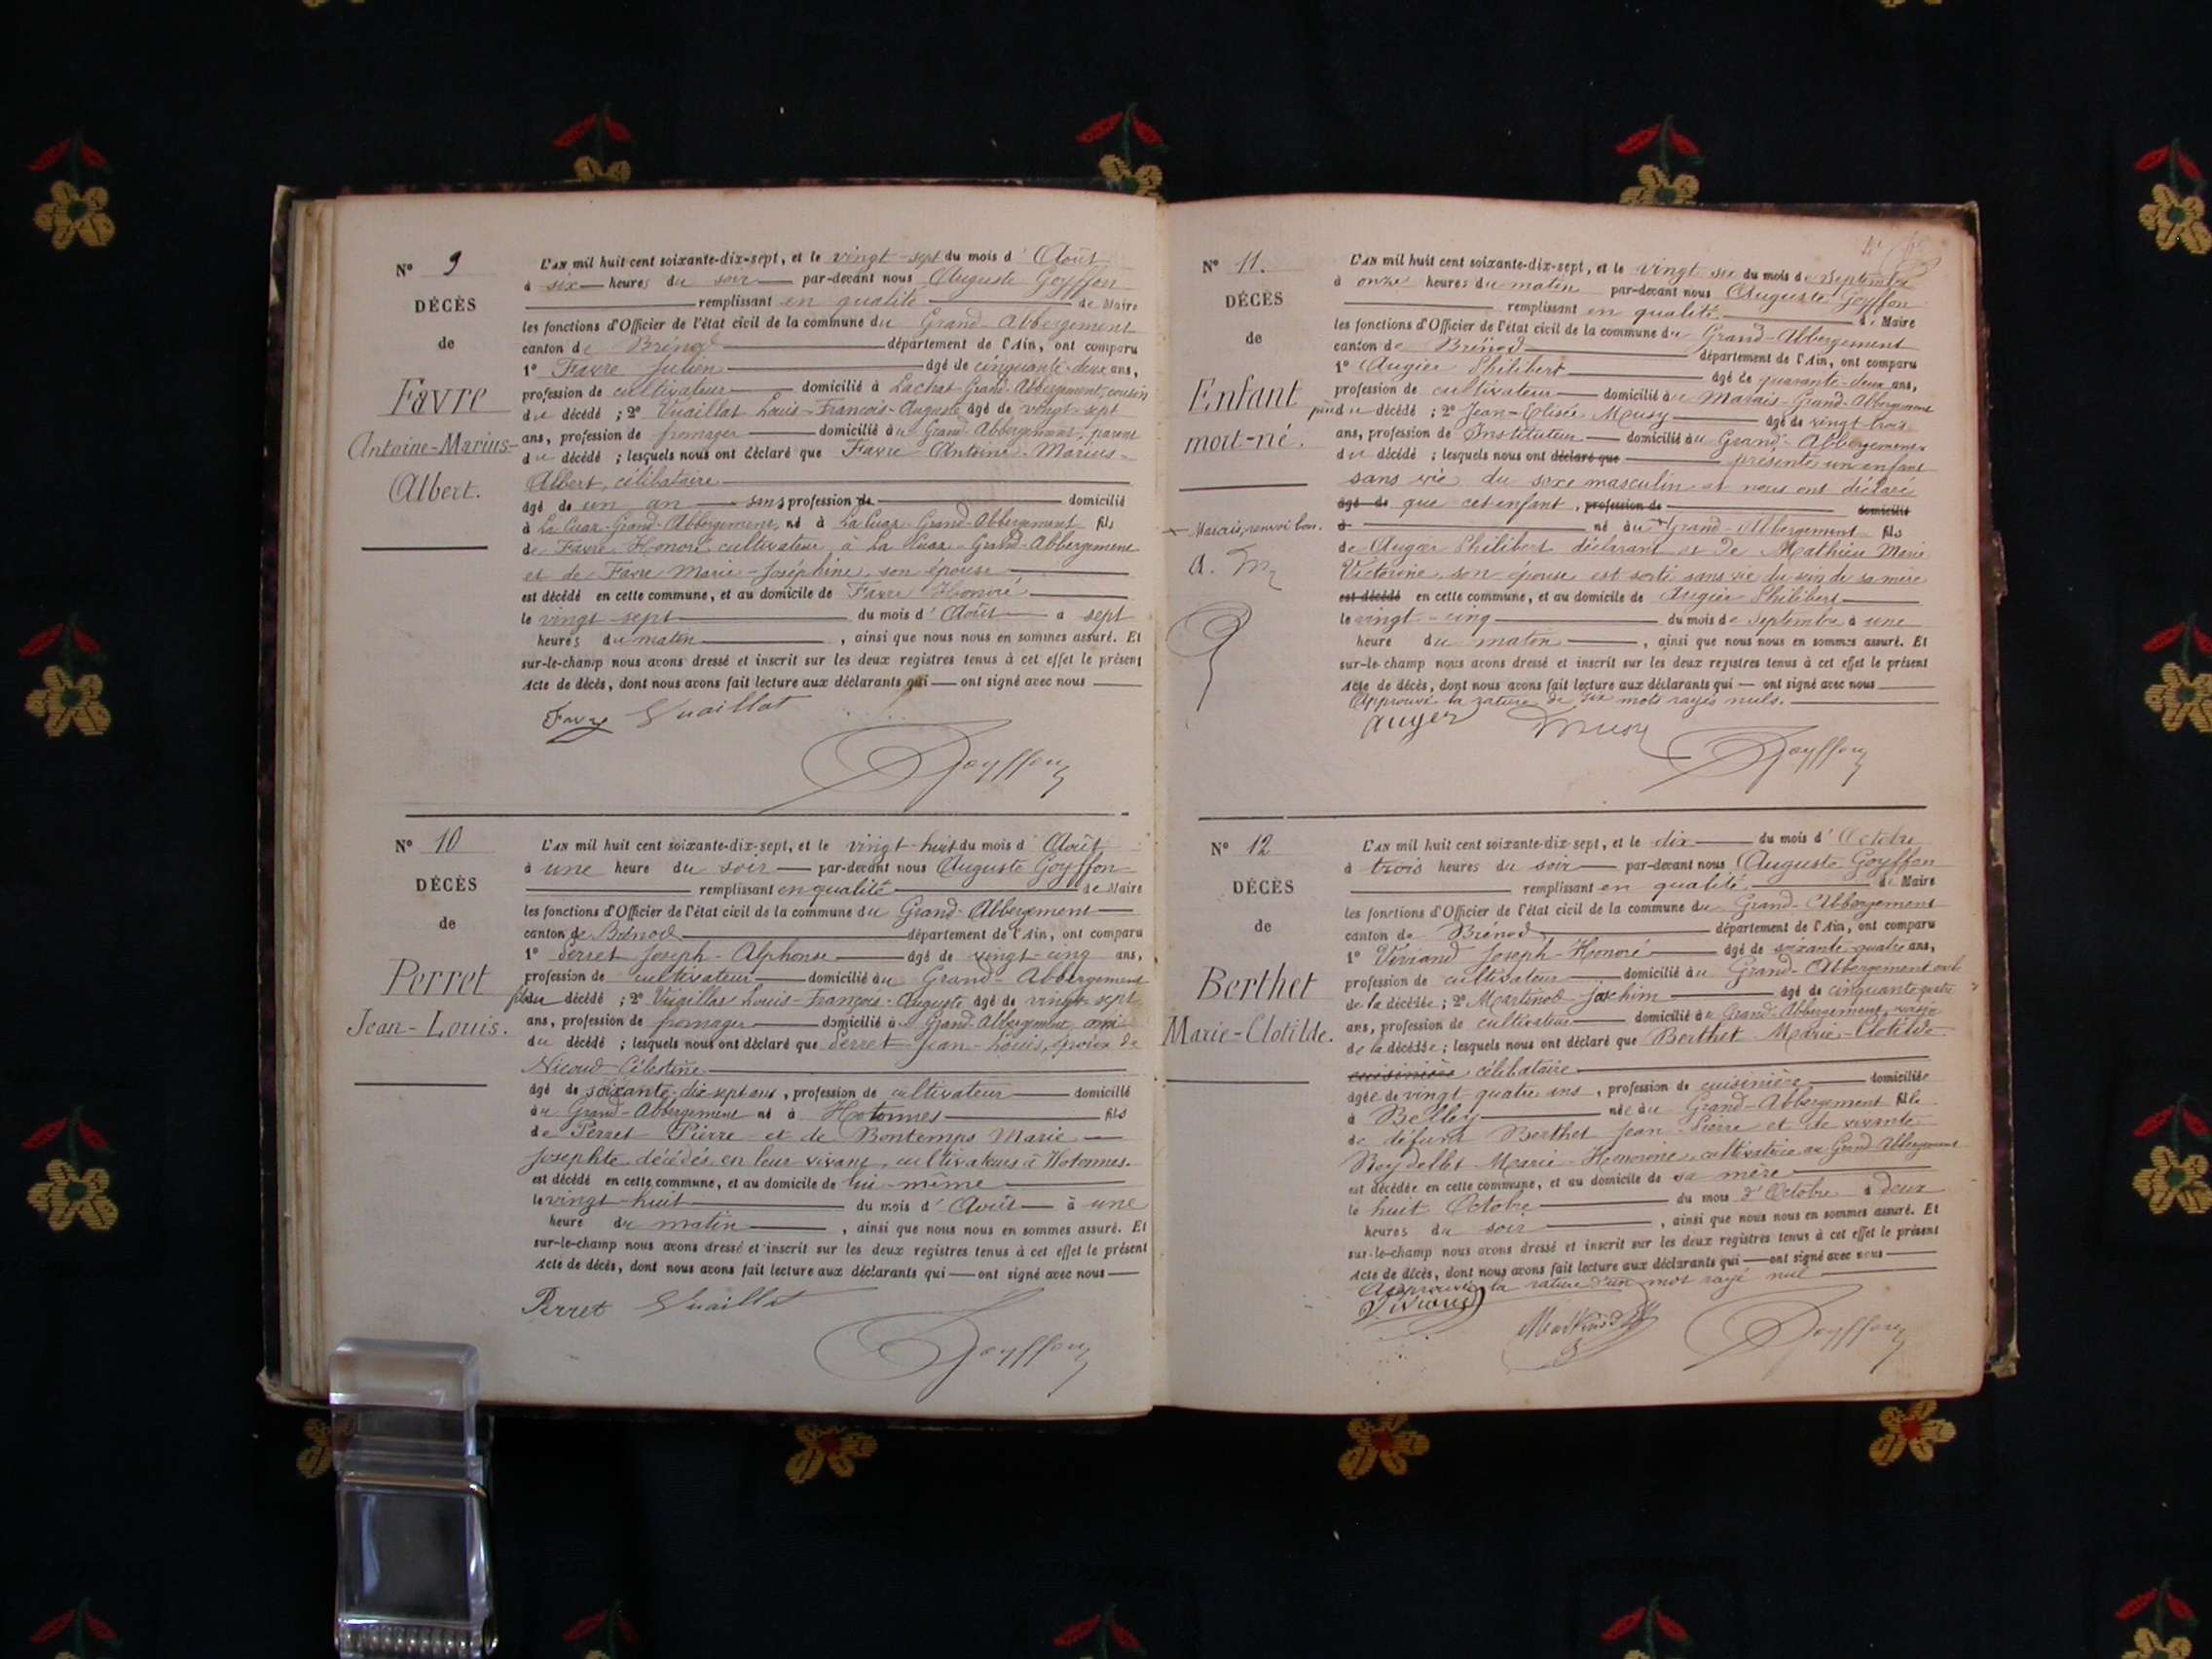 N° 9
DÉCÈS
de
Favre
Antoine-Marius-
Albert.
L'AN mil huit cent soixante-dix-sept, et le vingt-sept du mois d'Août
à six heures du soir par-devant nous Auguste Goyffon
remplissant en qualité de Maire
les fonctions d'Officier de l'état civil de la commune du Grand-Abbergement
canton de Brénod département de l'Ain, ont comparu
1° Favre Julien âgé de cinquante-deux ans,
profession de cultivateur domicilié à Lachat-Grand-Abbergement, cousin
du décédé ; 2° Vuaillat Louis-François-Auguste âgé de vingt-sept
ans, profession de fromager domicilié au Grand-Abbergement, parent
du décédé ; lesquels nous ont déclaré que Favre Antoine-Marius-
Albert, célibataire
âgé de un an sans profession de domicilié
à La Cuaz-Grand-Abbergement, né à La Cuaz-Grand-Abbergement fils
de Favre Honoré cultivateur à La Cuaz-Grand-Abbergement
et de Favre Marie-Joséphine, son épouse
est décédé en cette commune, et au domicile de Favre Honoré
le vingt-sept du mois d'Août à sept
heures du matin, ainsi que nous nous en sommes assuré. Et
sur-le-champ nous avons dressé et inscrit sur les deux registres tenus à cet effet le présent
Acte de décès, dont nous avons fait lecture aux déclarants qui ont signé avec nous
Favre Vuaillat
Goyffon
N° 10
DÉCÈS
de
Perret
Jean-Louis.
L'AN mil huit cent soixante-dix-sept, et le vingt-huit du mois d'Août
à une heure du soir par-devant nous Auguste Goyffon
remplissant en qualité de Maire
les fonctions d'Officier de l'état civil de la commune du Grand-Abbergement
canton de Brénod département de l'Ain, ont comparu
1° Perret Joseph-Alphonse âgé de vingt-cinq ans,
profession de cultivateur domicilié au Grand-Abbergement
fils du décédé ; 2° Vuaillat Louis-François-Auguste âgé de vingt-sept
ans, profession de fromager domicilié au Grand-Abbergement, ami
du décédé ; lesquels nous ont déclaré que Perret Jean-Louis, époux de
Nicoud Célestine
âgé de soixante-dix-sept ans, profession de cultivateur domicilié
au Grand-Abbergement né à Hotonnes fils
de Perret Pierre et de Bontemps Marie
Josephte décédés en leur vivant, cultivateurs à Hotonnes.
est décédé en cette commune, et au domicile de lui-même
le vingt-huit du mois d'Août à une
heure du matin, ainsi que nous nous en sommes assuré. Et
sur-le-champ nous avons dressé et inscrit sur les deux registres tenus à cet effet le présent
Acte de décès, dont nous avons fait lecture aux déclarants qui ont signé avec nous
Perret Vuaillat
Goyffon
N° 11.
DÉCÈS
de
Enfant
mort-né.
Marais, renvoi bon.
A. M
L'AN mil huit cent soixante-dix-sept, et le vingt-six du mois de Septembre
à onze heures du matin par-devant nous Auguste Goyffon
remplissant en qualité de Maire
les fonctions d'Officier de l'état civil de la commune du Grand-Abbergement
canton de Brénod département de l'Ain, ont comparu
1° Augier Philibert âgé de quarante-deux ans,
profession de cultivateur domicilié au Marais-Grand-Abbergement
père du décédé ; 2° Jean-Elisée Musy âgé de vingt-trois
ans, profession de Instituteur domicilié au Grand-Abbergement
du décédé ; lesquels nous ont déclaré que présenté un enfant
sans vie du sexe masculin et nous ont déclaré
âgé de que cet enfant, profession de domicilié
à né au Grand-Abbergement fils
de Augier Philibert déclarant et de Mathieu Marie
Victorine, son épouse est sorti sans vie du sein de sa mère
est décédé en cette commune, et au domicile de Augier Philibert
le vingt-cinq du mois de Septembre à une
heure du matin, ainsi que nous nous en sommes assuré. Et
sur-le-champ nous avons dressé et inscrit sur les deux registres tenus à cet effet le présent
Acte de décès, dont nous avons fait lecture aux déclarants qui ont signé avec nous
Approuvé la rature de dix mots rayés nuls.
Augier Musy
Goyffon
N° 12
DÉCÈS
de
Berthet
Marie-Clotilde.
L'AN mil huit cent soixante-dix-sept, et le dix du mois d'Octobre
à trois heures du soir par-devant nous Auguste Goyffon
remplissant en qualité de Maire
les fonctions d'Officier de l'état civil de la commune du Grand-Abbergement
canton de Brénod département de l'Ain, ont comparu
1° Viviand Joseph-Honoré âgé de soixante-quatre ans,
profession de cultivateur domicilié au Grand-Abbergement
de la décédée ; 2° Martinod Joachim âgé de cinquante-quatre
ans, profession de cultivateur domicilié au Grand-Abbergement, voisin
de la décédée ; lesquels nous ont déclaré que Berthet Marie-Clotilde
cuisinière célibataire
âgée de vingt-quatre ans, profession de cuisinière domiciliée
à Belley née au Grand-Abbergement fille
de défunt Berthet Jean-Pierre et de vivante
Beydellet Marie-Honorine, cultivatrice au Grand-Abbergement
est décédée en cette commune, et au domicile de sa mère
le huit Octobre du mois d'Octobre à deux
heures du soir, ainsi que nous nous en sommes assuré. Et
sur-le-champ nous avons dressé et inscrit sur les deux registres tenus à cet effet le présent
Acte de décès, dont nous avons fait lecture aux déclarants qui ont signé avec nous
Approuvé la rature d'un mot rayé nul
Viviand
Martinod
Goyffon